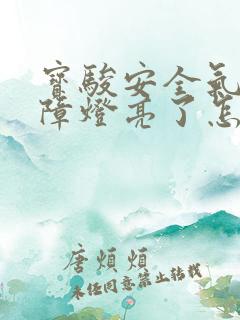 寶駿安全氣
障燈亮了怎
唐煩煩
未经同意禁止转载